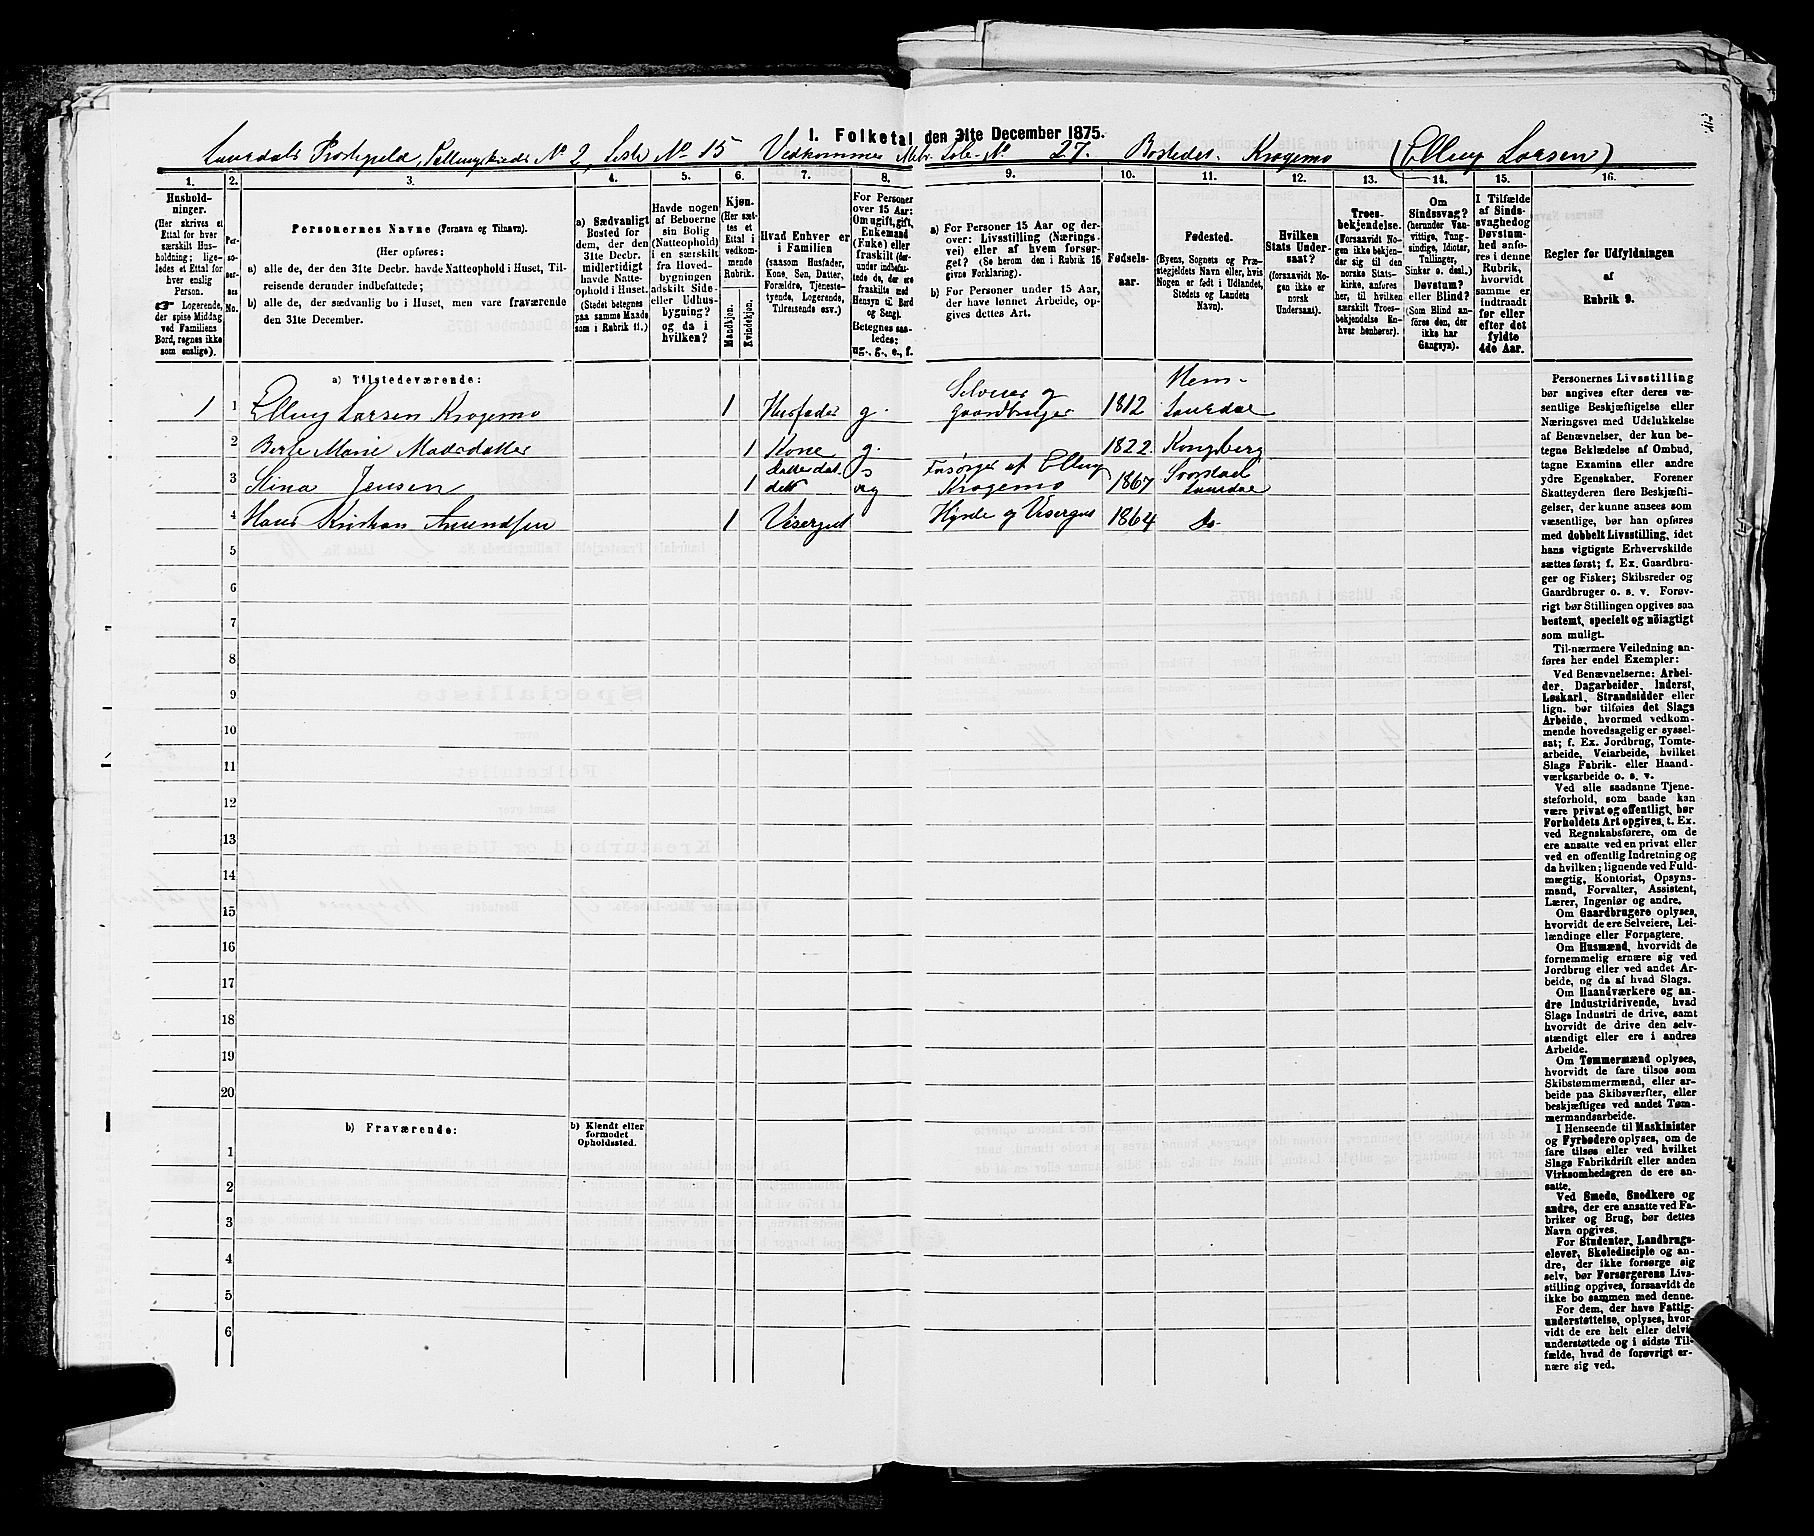 I. Folketal den 31te December 1875.
Laurdals Prestegield, Tællingskreds No 2, Liste No 15 Vedkommer Matr. Løbe-No 27. Bostedet Krogemo (Elling Larsen)
1.
Husholdninger.
(Her skrives et Ettal for hver særskilt Husholdning; ligeledes et Ettal for hver enslig Person.
☞ Logerende, der spise Middag ved Familiens Bord, regnes ikke som enslige).
2.
Personernes No.
3.
Personernes Navne (Fornavn og Tilnavn).
(Her opføres:
a) alle de, der den 31te Decbr. havde Natteophold i Huset, Tilreisende derunder indbefattede;
b) alle de, der sædvanlig bo i Huset, men vare fraværende den 31te December.
4.
a) Sædvanligt Bosted for dem, der den 31te Decbr. midlertidigt havde Natteophold i Huset.
(Stedet betegnes paa samme Maade som i Rubrik 11.)
5.
Havde nogen af Beboerne sin Bolig (Natteophold) i en særskilt fra Hovedbygningen adskilt Side- eller Udhusbygning? og da i hvilken?
6.
Kjøn.
(Her sættes et Ettal i vedkommende Rubrik.
Mandkjøn.
Kvindekjøn.
7.
Hvad Enhver er i Familien
(saasom Husfader, Kone, Søn, Datter, Forældre, Tjenestetyende, Logerende, Tilreisende osv.)
8.
For Personer over 15 Aar: Om ugift, gift, Enkemand (Enke) eller fraskilt (derunder indbefattede de, der ere fraskilte med Hensyn til Bord og Seng).
Betegnes saaledes: ug., g., e., f.
9.
a) For Personer 15 Aar og derover: Livsstilling (Næringsvei) eller af hvem forsørget? (Se herom den i Rubrik 16 givne Forklaring).
b) For Personer under 15 Aar, der have lønnet Arbeide, opgives dettes Art.
10.
Fødselsaar.
11.
Fødested.
(Byens, Sognets og Præstegjeldets Navn eller, hvis Nogen er født i Udlandet, Stedets og Landets Navn).
12.
Hvilken Stats Undersaat?
(forsaavidt Nogen ikke er norsk Undersaat).
13.
Troesbekjendelse.
(Forsaavidt Nogen ikke bekjender sig til den norske Statskirke, anføres her, til hvilken særskilt Troesbekjendelse Enhver henhører).
14.
Om Sindssvag?
(herunder Vanvittige, Tungsindige, Idioter, Tullinger, Sinker o. desl.)
Døvstum? eller Blind?
(Som Blind anføres den, der ikke har Gangsyn).
15.
I Tilfælde af Sindssvaghed og Døvstumhed anføres i denne Rubrik, hvorvidt samme er indtraadt før eller efter det fyldte 4de Aar.
16.
Regler for Udfyldningen af Rubrik 9.
a) Tilstedeværende:
1 1 Elling Larsen Krogemo 1 Husfader g. Selveier og Gaardbruger 1812 Hem-Laurdal
2 Berte Marie Madsdatter 1 Kone g. 1822. Kongsberg
3 Stina Jensen 1 datterdat. Forsørges af Elling Krogemo 1867 Laurdal
4 Hans Kristian Amundsen 1 1864 Do
5
6
7
8
9
10
11
12
13
14
15
16
17
18
19
20
b) Fraværende:
b) Kjendt eller formodet Opholdssted.
1
2
3
4
5
6
Personernes Livsstilling
bør angives efter deres væ-
sentlige Beskjæftigelse eller
Næringsvei med Udelukkelse
af Benævnelser, der kun be-
tegne Beklædelse af Ombud,
tagne Examina eller andre
ydre Egenskaber. Forener
Skatteyderen flere Beskjæfti-
gelser, der kunne ansees som
væsentlige, bør han opføres
med dobbelt Livsstilling, idet
hans vigtigste Erhvervskilde
sættes først; f. Ex. Gaardbru-
ger og Fisker; Skibsreder og
Gaardbruger o. s. v. Forøv-
rigt bør Stillingen opgives saa
bestemt, specielt og nøiagtigt
som muligt.
Til nærmere Veiledning an-
føres her endel Exempler:
Ved Benævnelserne: Arbei-
der, Dagarbeider, Inderst,
Løskarl, Strandsidder eller
lign. bør tilføies det Slags
Arbeide, hvormed vedkom-
mende hovedsagelig er syssel-
sat; f. Ex. Jordbrug, Tomte-
arbeide, Veiarbeide, hvilket
Slags Fabrik- eller Haand-
værksarbeide o. s. v.
Ved alle saadanne Tjene-
steforhold, som baade kan
være privat og offentligt, bør
Forholdets Art opgives, t. Ex.
ved Regnskabsførere, om de
ere ansatte ved en privat eller
ved en offentlig Indretning og
da hvilken; lignende ved Fuld-
mægtig, Kontorist, Opsyns-
mand, Forvalter, Assistent,
Lærer, Ingeniør og andre.
Om Gaardbrugere oplyses,
hvorvidt de ere Selveiere, Lei-
lændinge eller Forpagtere.
Om Husmænd, hvorvidt de
fornemmelig ernære sig ved
Jordbrug eller ved andet Ar-
beide, og da af hvad Slags.
Om Haandværkere og an-
dre Industridrivende, hvad
Slags Industri de drive, samt
hvorvidt de drive den selv-
stændigt eller ere i andres
Arbeide.
Om Tømmermænd oplyses,
hvorvidt de fare tilsøs som
Skibstømmermænd, eller ar-
beide paa Skibsværfter, eller
beskjæftiges ved andet Tøm-
mermandsarbeide.
I Henseende til Maskinister
og Fyrbødere oplyses, om de
fare tilsøs eller ved hvilket
Slags Fabrikdrift eller anden
Virksomhedsgren de ere an-
satte.
Ved Smede, Snedkere og
andre, der ere ansatte ved Fa-
briker og Brug, bør dettes
Navn opgives.
For Studenter, Landbrugs-
elever, Skoledisciple og an-
dre, der ikke forsørge sig
selv, bør Forsørgerens Livs-
stilling opgives, forsaavidt de
ikke bo sammen med denne.
For dem, der have Fattig-
understøttelse, oplyses, hvor-
vidt de ere helt eller delvis
understøttede og i sidste Til-
fælde, hvad de forøvrigt er-
nære sig ved.